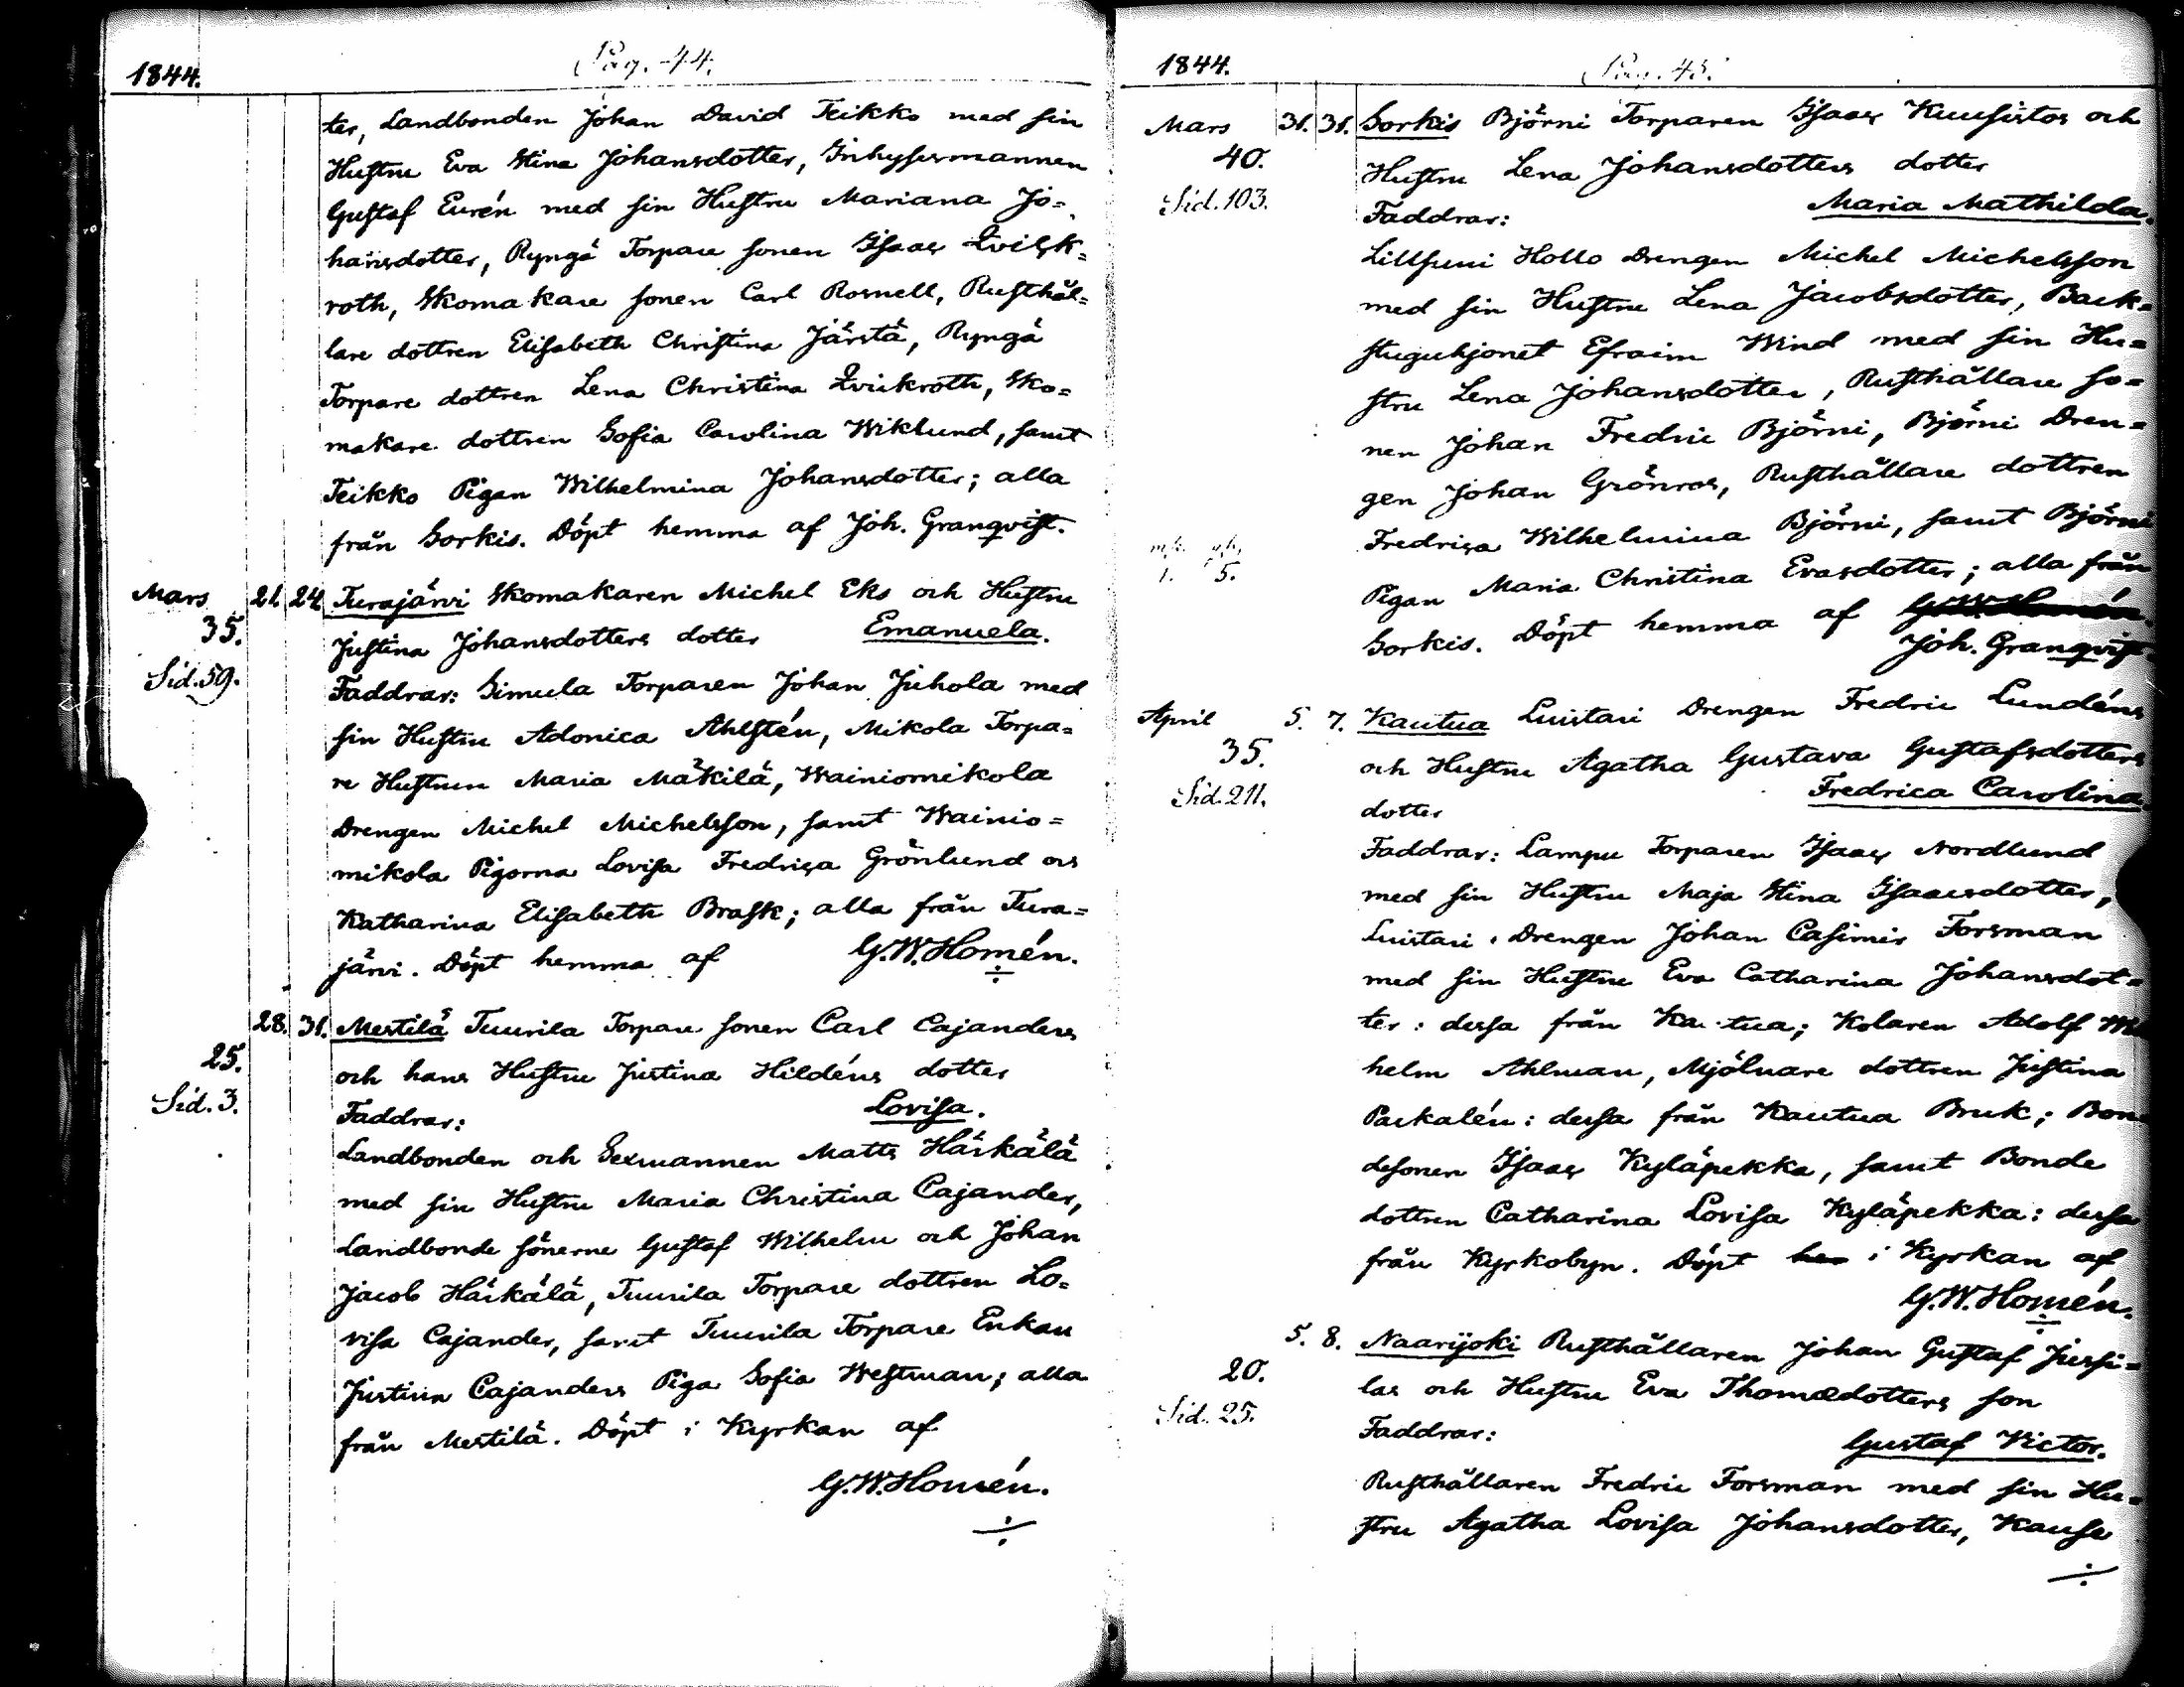 1844.
Pag. 44.
ter, Landbonden Johan David Teikko med sin
Hustru Eva Stina Johansdotter, Inhysesmannen
Gustaf Eurén med sin Hustru Mariana Jo=
hansdotter, Ryngä Torpare sonen Isaac Qvick=
roth, Skomakare sonen Carl Rosnell, Rusthål=
lare dottren Elisabeth Christina Järstä, Ryngä
Torpare dottren Lena Christina Qvickroth, Sko=
makare dottren Sofia Carolina Wiklund, samt
Teikko Pigan Wilhelmina Johansdotter; alla
från Sorkis. Döpt hemma af Joh. Granqvist.
Mars 21. 24. Turajärvi Skomakaren Michel Eks och Hustru
35.
Justina Johansdotters dotter Emanuela.
Sid. 59.
Faddrar: Simula Torparen Johan Juhola med
sin Hustru Adonica Ahlstén, Mikola Torpa=
re Hustrun Maria Mäkilä, Wainiomikola
Drengen Michel Michelsson, samt Wainio=
mikola Pigorna Lovisa Fredrica Grönlund och
Katharina Elisabeth Brask; alla från Tura=
järvi. Döpt hemma af G.W. Homén.
28. 31. Mestilä Tuurila Torpare sonen Carl Cajanders
25.
och hans Hustru Justina Hildéns dotter
Sid. 3.
Faddrar: Lovisa.
Landbonden och Sexmannen Matts Härkälä
med sin Hustru Maria Christina Cajander,
Landbonde sönerne Gustaf Wilhelm och Johan
Jacob Härkälä, Tuurila Torpare dottren Lo=
visa Cajander, samt Tuurila Torpare Enkan
Justina Cajanders Piga Sofia Westman; alla
från Mestilä. Döpt i Kyrkan af
G.W. Homén.
1844.
Pag. 45.
Mars 31. 31. Sorkis Björni Torparen Isaac Kuusistos och
40.
Hustru Lena Johansdotters dotter
Sid. 103.
Faddrar: Maria Mathilda.
Lillsuni Hollo Drengen Michel Michelsson
med sin Hustru Lena Jacobsdotter, Back=
stuguhjonet Efraim Wind med sin Hu=
stru Lena Johansdotter, Rusthållare so=
nen Johan Fredric Björni, Björni Dren=
gen Johan Grönros, Rusthållare dottren
Fredrica Wilhelmina Björni, samt Björni
1. 5.
Pigan Maria Christina Evasdotter; alla från
Sorkis. Döpt hemma af G.W. Homén.
Joh. Granqvist.
April 5. 7. Kautua Luistari Drengen Fredric Lundéns
35.
och Hustru Agatha Gustava Gustafsdotters
Sid. 211.
dotter Fredrica Carolina.
Faddrar: Lampu Torparen Isaac Nordlund
med sin Hustru Maja Stina Isaacsdotter,
Luistari Drengen Johan Casimir Forsman
med sin Hustru Eva Catharina Johansdot=
ter: dessa från Kautua; Kolaren Adolf Wil
helm Ahlman, Mjölnare dottren Justina
Packalén: dessa från Kautua Bruk; Bon=
desonen Isaac Kyläpekka, samt Bonde
dottren Catharina Lovisa Kyläpekka: dessa
från Kyrkobyn. Döpt hem i Kyrkan af
G.W. Homén.
5. 8. Naarijoki Rusthållaren Johan Gustaf Jussi=
20.
las och Hustru Eva Thomædotters son
Sid. 25.
Faddrar: Gustaf Victor.
Rusthållaren Fredric Forsman med sin Hu=
stru Agatha Lovisa Johansdotter, Kause